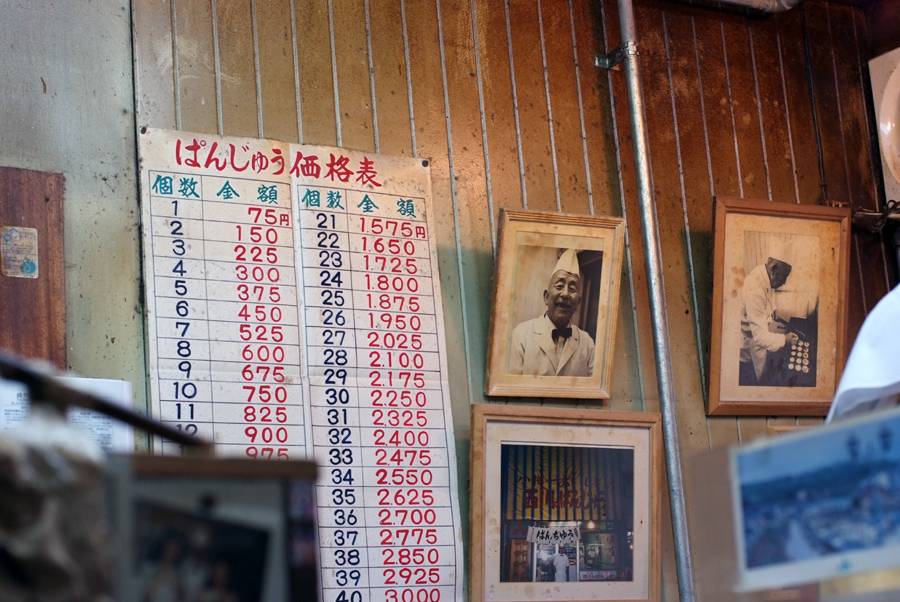 ぱんじゅう価格表
個数 金額 個数 金額
1 75円 21 1.575円
2 150 22 1.650
3 225 23 1.725
4 300 24 1.800
5 375 25 1.875
6 450 26 1.950
7 525 27 2.025
8 600 28 2.100
9 675 29 2.175
10 750 30 2.250
11 825 31 2.325
12 900 32 2.400
975 33 2.475
34 2.550
35 2.625
36 2.700
37 2.775
38 2.850
39 2.925
40 3.000
ぱんぢゅう